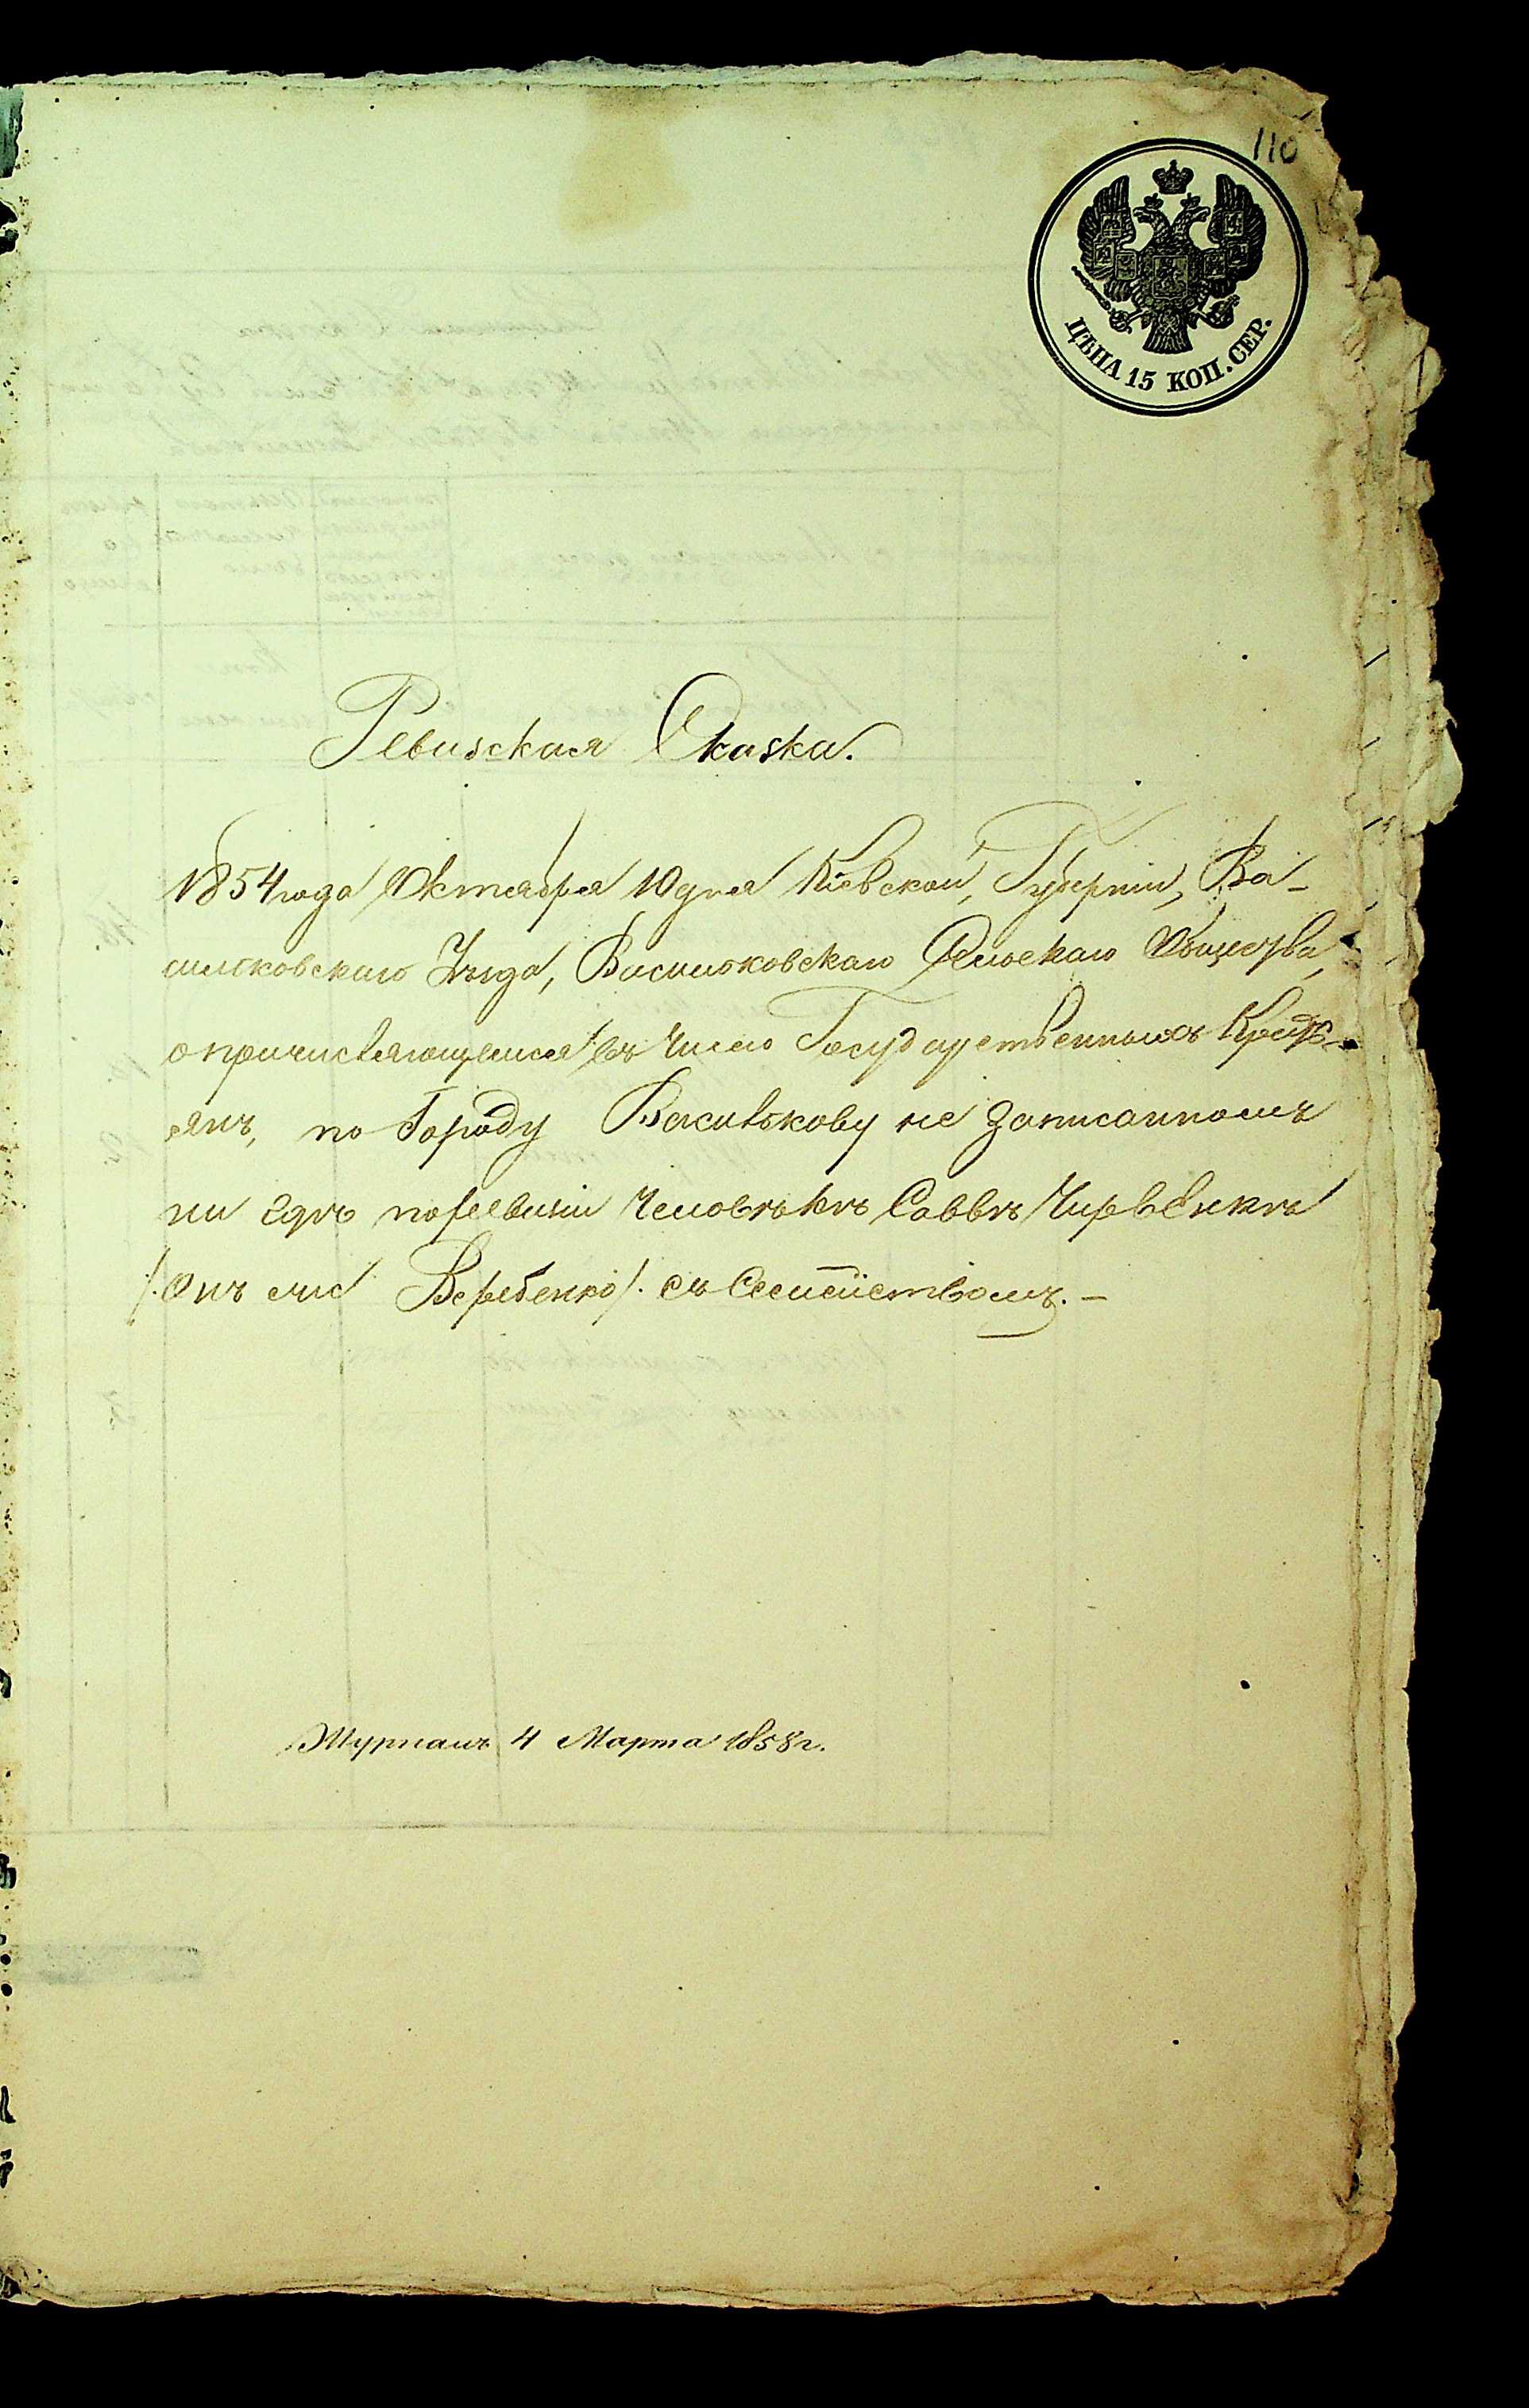 110
ЦѢНА 15 КОП. СЕР.
Ревизская Сказка.
1854 года Октября 10 дня Кіевской, Губерніи, Ва-
сильковскаго Уѣзда, Васильковскаго Сельскаго Общества,
о причисляющемся въ число Государственныхъ Кресть-
янъ, по Городу Василькову не записанномъ
ни гдѣ по ревизіи человѣкѣ Саввѣ Чирвенкѣ
/: Онъ же Вербенко /: съ Семействомъ. —
Журналъ 4 Марта 1858 г.